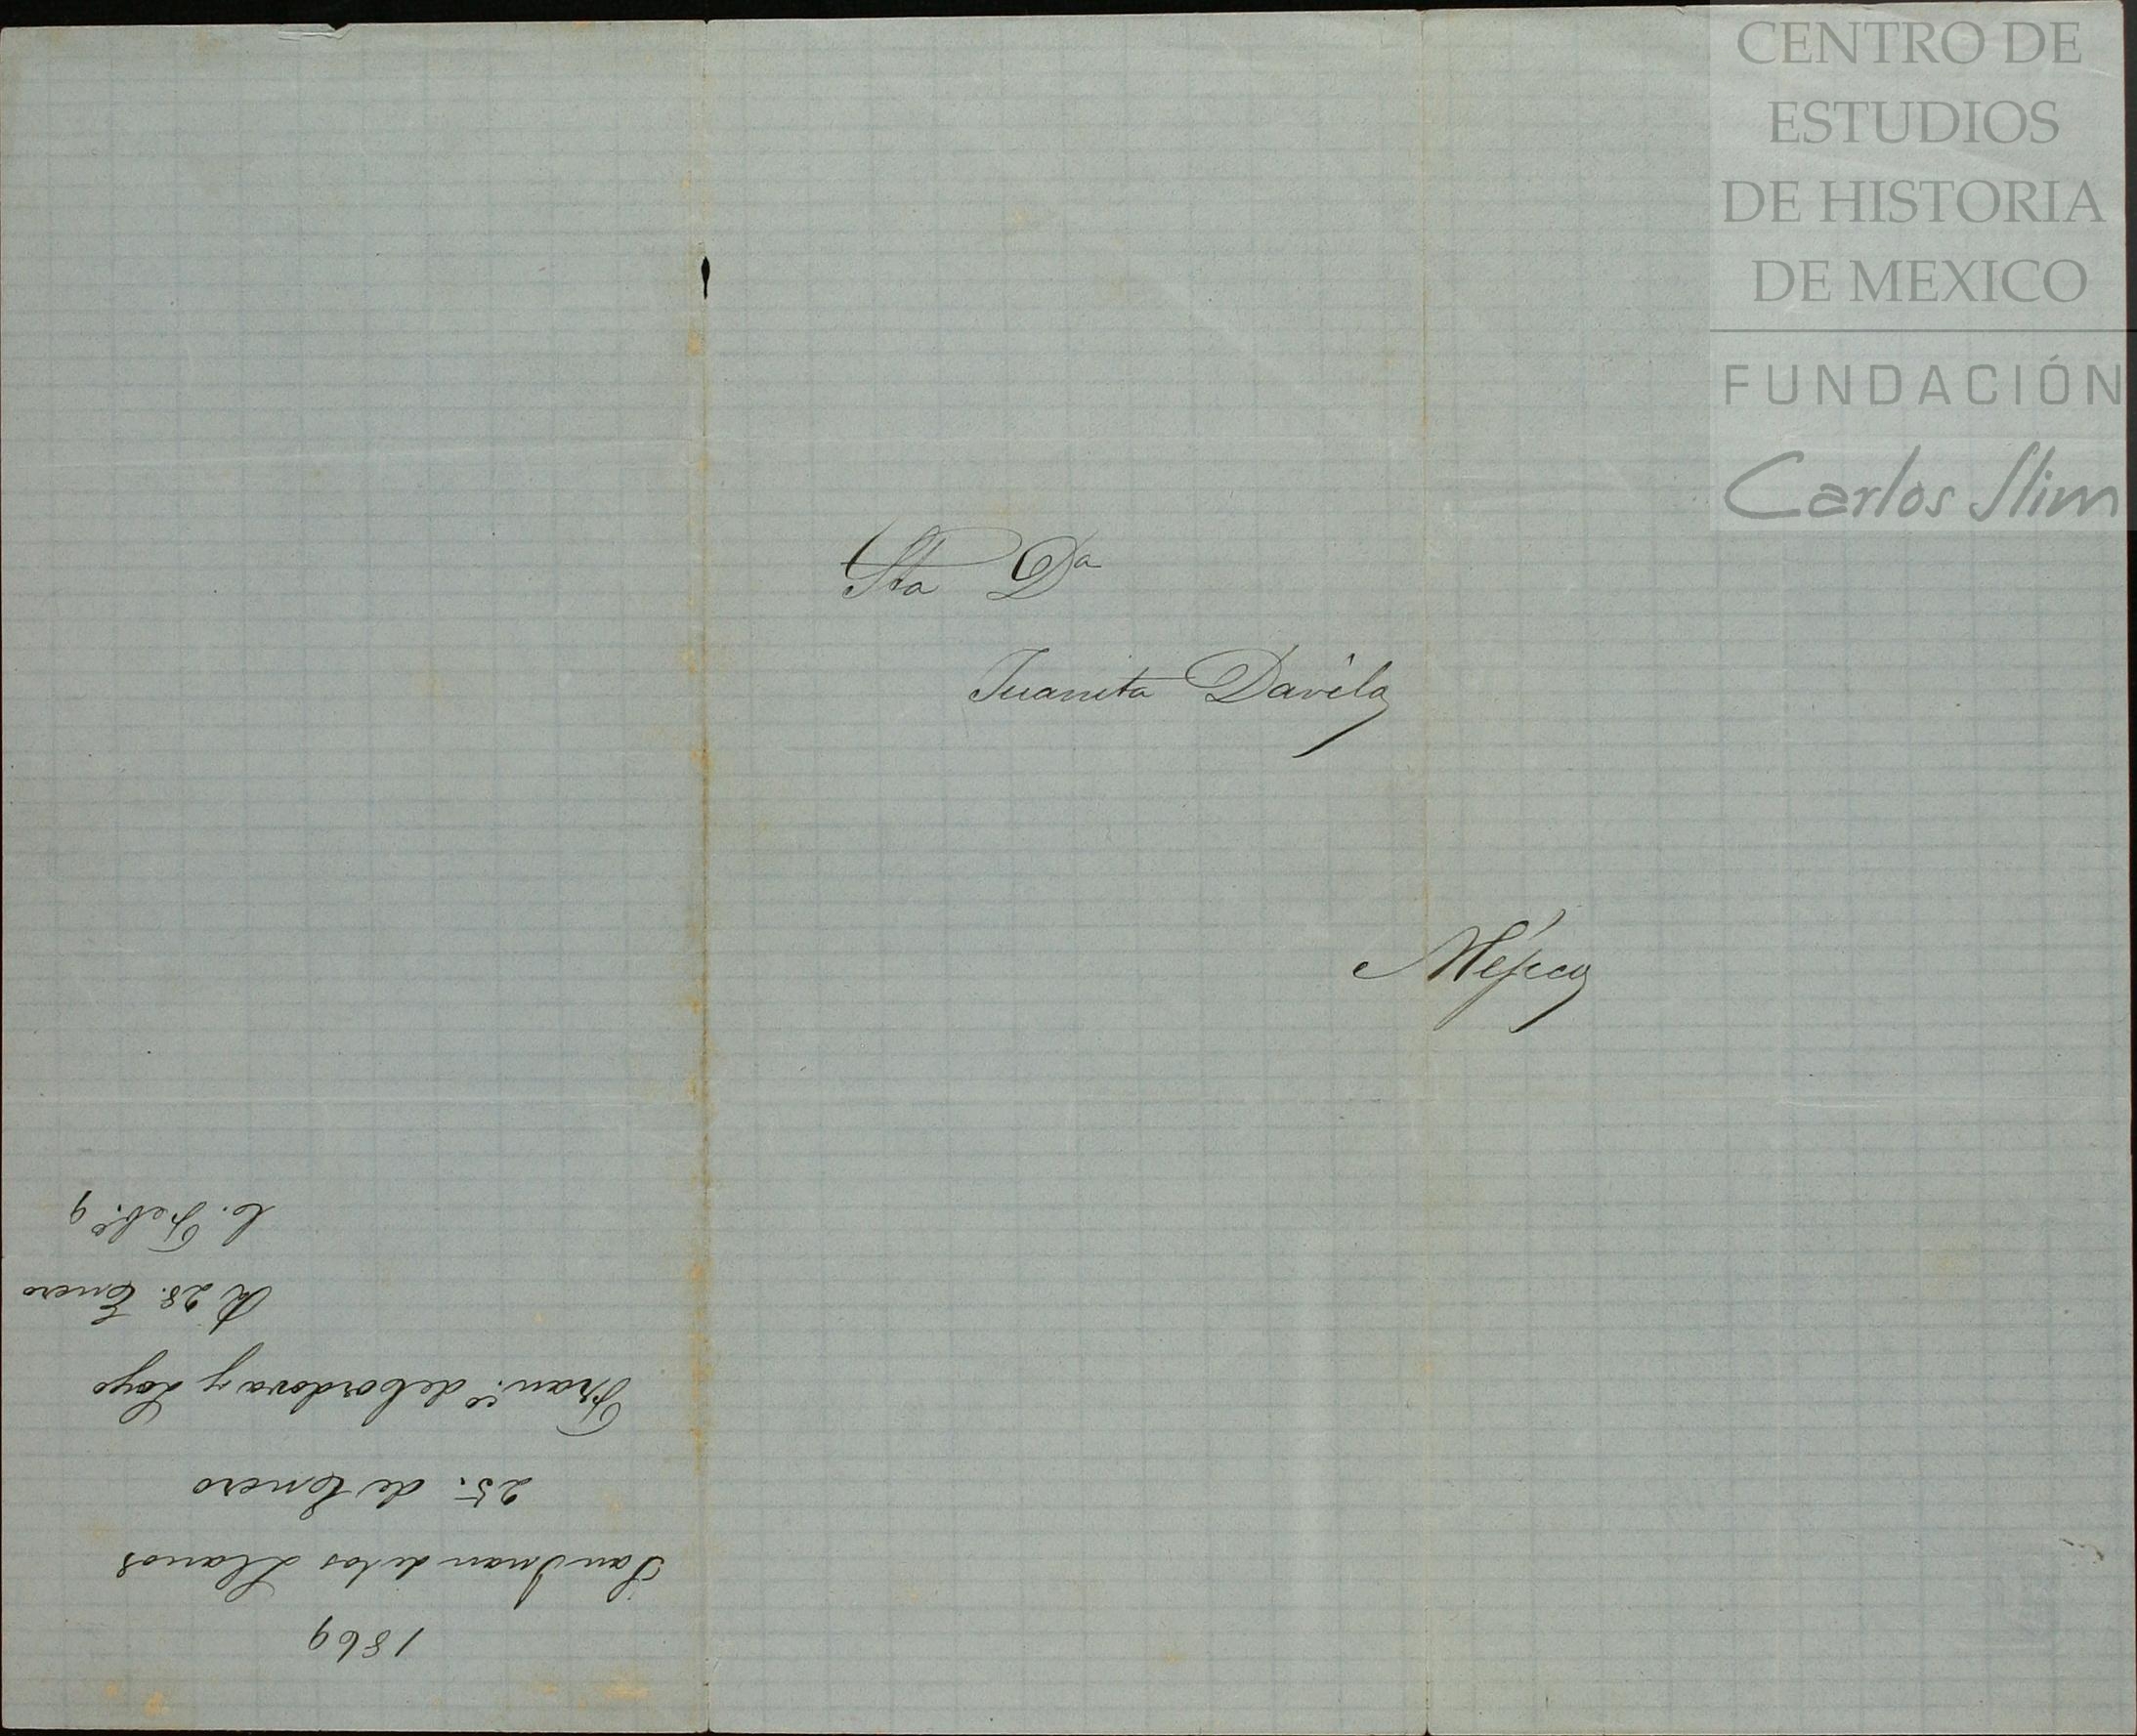 CENTRO DE
ESTUDIOS
DE HISTORIA
DE MEXICO
FUNDACIÓN
Carlos Slim
Sta Da
Juanita Davila
Méjico
1869
San Juan de los Llanos
25. de Enero
Fran.co de Cordova y Layo
R 28. Enero
C. Feb.o 9